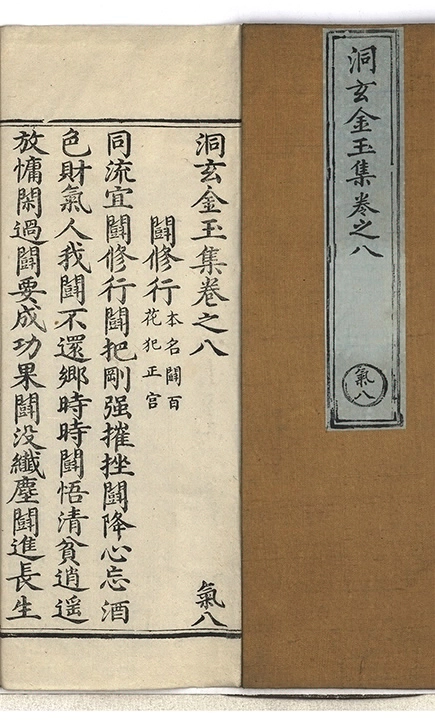 洞玄金玉集卷之八
氣八
洞玄金玉集卷之八
氣八
闘修行
本名闘百
花犯正宫
同流宜闘修行闘把剛强摧挫闘降心忘酒
色財氣人我闘不還鄉時時闘悟清貧逍遥
放慵閑過闘要成功果闘没纖塵闘進長生